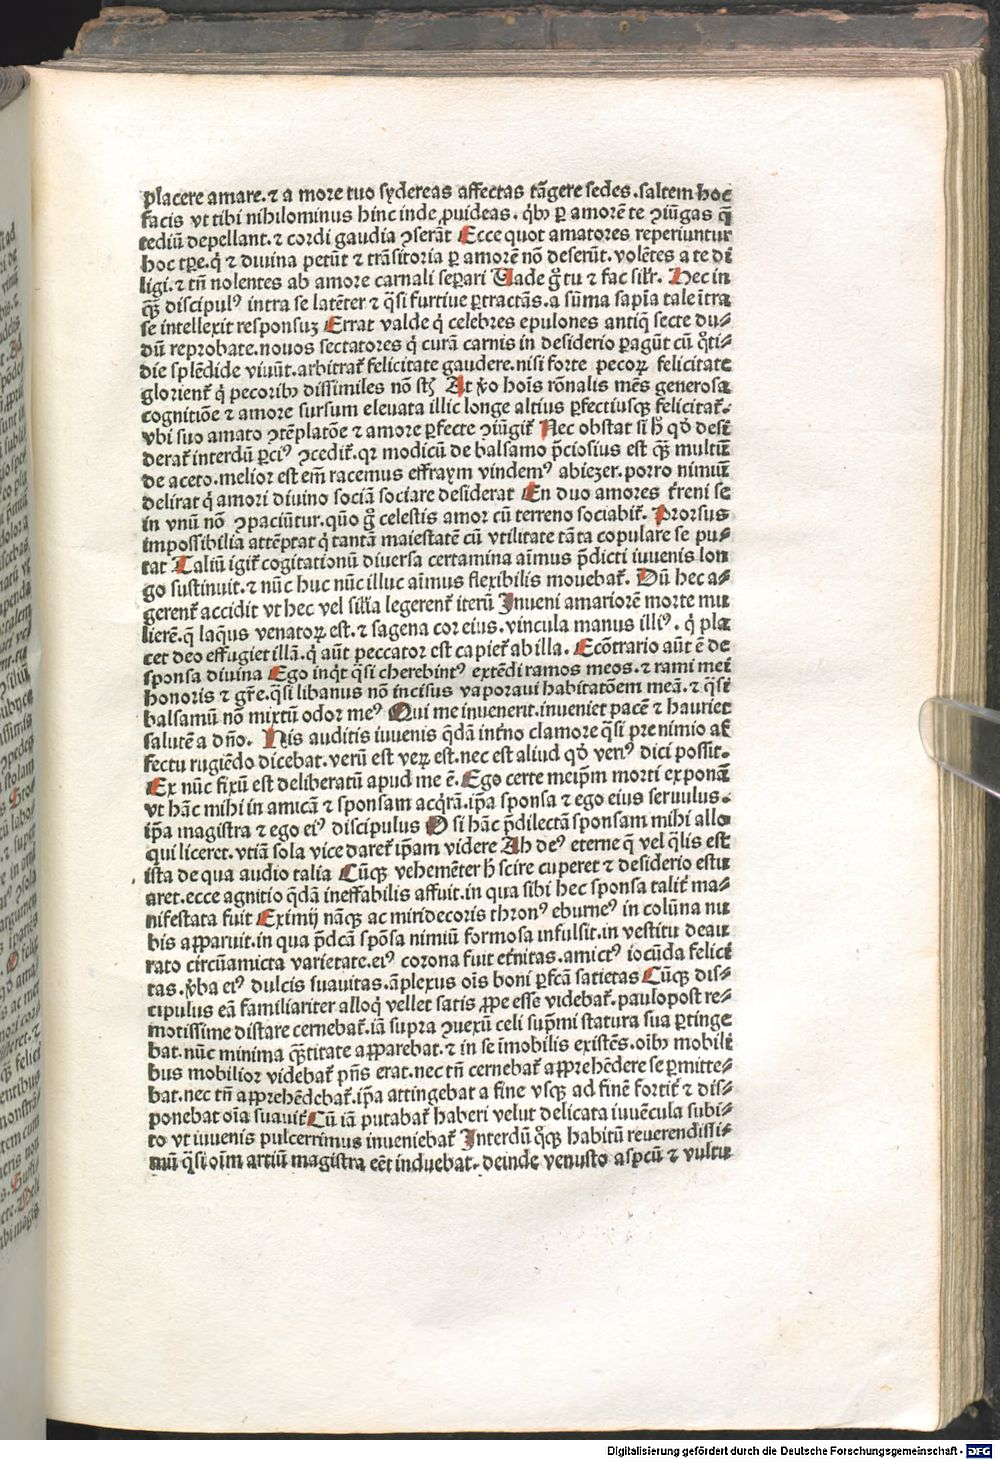 placere amare. ⁊ a more tuo sydereas affectas tāgere sedes. saltem hoc
facis vt tibi nihilominus hinc inde ꝓuideas. qͥbꝫ ꝑ amorē te ↄiūgas q̄
tediū depellant. ⁊ cordi gaudia ↄserāt Ecce quot amatores reperiuntur
hoc tꝑe. qͥ ⁊ diuina petūt ⁊ trāsitoria ꝑ amorē nō deserūt. volētes a te di
ligi. ⁊ tn̄ nolentes ab amore carnali seꝑari Uade gͦ tu ⁊ fac silꝶ. Hec in
qͣꝫ discipulꝰ intra se latēter ⁊ qͣsi furtiue ꝑtractās. a sūma sapīa tale ītra
se intellexit responsuꝫ Errat valde qͥ celebres epulones antiq̄ secte du⸗
dū reprobate. nouos sectatores qͥ curā carnis in desiderio ꝑagūt cū qͦti⸗
die splēdide viuūt. arbitrat᷑ felicitate gaudere. nisi forte pecoꝝ felicitate
glorient᷑ qͥ pecoribꝫ dissimiles nō st̄ At ꝟo hoīs rōnalis mēs generosa
cognitiōe ⁊ amore sursum eleuata illic longe altius ꝑfectiusqꝫ felicitat᷑.
vbi suo amato ↄtēplatōe ⁊ amore ꝑfecte ↄiūgit᷑ Nec obstat si hͦ qd̓ desi
derat᷑ interdū ꝑciꝰ ↄcedit᷑. qꝛ modicū de balsamo p̄ciosius est qͣꝫ multū
de aceto. melior est em̄ racemus effraym vindemꝰ abiezer. porro nimiū
delirat qͥ amori diuino sociā sociare desiderat En duo amores t᷑reni se
in vnū nō ↄpaciūtur. quō gͦ celestis amor cū terreno sociabit᷑. Prorsus
impossibilia attēptat qͥ tantā maiestatē cū vtilitate tāta copulare se pu⸗
tat Taliū igit᷑ cogitationū diuersa certamina aīmus p̄dicti iuuenis lon
go sustinuit. ⁊ nūc huc nūc illuc aīmus flexibilis mouebat᷑. Dū hec a⸗
gerent᷑ accidit vt hec vel sīlia legerent᷑ iterū Inueni amariorē morte mu
lierē. q̄ laqus venatoꝝ est. ⁊ sagena cor eius. vincula manus illiꝰ. qͥ pla
cet deo effugiet illā. qͥ aūt peccator est capiet᷑ ab illa. Ecōtrario aūt ē de
sponsa diuina Ego inqͥt qͣsi cherebintꝰ extēdi ramos meos. ⁊ rami mei
honoris ⁊ gr̄e. qͣsi libanus nō incisus vaporaui habitatōem meā. ⁊ qͣsi
balsamū nō mixtū odor meꝰ Qui me inuenerit. inueniet pacē ⁊ hauriet
salutē a dn̄o. His auditis iuuenis qͦdā int᷑no clamore qͣsi pre nimio af
fectu rugiēdo dicebat. verū est veꝝ est. nec est aliud qd̓ veriꝰ dici possit.
Ex nūc fixū est deliberatū apud me ē. Ego certe meip̄m morti exponā
vt hāc mihi in amicā ⁊ sponsam acqͥrā. ip̄a sponsa ⁊ ego eius seruulus.
ip̄a magistra ⁊ ego eiꝰ discipulus O si hāc p̄dilectā sponsam mihi allo
qui liceret. vtiā sola vice daret᷑ ip̄am videre Ah deꝰ eterne q̄ vel qͣlis est
ista de qua audio talia Cūqꝫ vehemēter hͦ scire cuperet ⁊ desiderio estu
aret. ecce agnitio qͣdā ineffabilis affuit. in qua sibi hec sponsa talit᷑ ma⸗
nifestata fuit Eximij nāqꝫ ac miri decoris thronꝰ eburneꝰ in colūna nu
bis aꝑparuit. in qua p̄dcā spōsa nimiū formosa infulsit. in vestitu deau
rato circūamicta varietate. eiꝰ corona fuit et᷑nitas. amictꝰ iocūda felici
tas. ꝟba eiꝰ dulcis suauitas. āplexus oīs boni ꝑfcā satietas Cūqꝫ dis⸗
cipulus eā familiariter alloqͥ vellet satis ꝓpe esse videbat᷑. paulopost re⸗
motissime distare cernebat᷑. iā supra ↄuexū celi sup̄mi statura sua ꝑtinge
bat. nūc minima qͣꝫtitate aꝑparebat. ⁊ in se īmobilis existēs. oībꝫ mobili
bus mobilior videbat᷑ pn̄s erat. nec tn̄ cernebat᷑ aꝑprehēdere se ꝑmitte⸗
bat. nec tn̄ aꝑprehēdebat᷑. ip̄a attingebat a fine vsqꝫ ad finē fortit᷑ ⁊ dis⸗
ponebat oīa suauit᷑ Cū iā putabat᷑ haberi velut delicata iuuēcula subi⸗
to vt iuuenis pulcerrimus inueniebat᷑ Interdū qͦqꝫ habitū reuerendissi⸗
mū qͣsi oīm artiū magistra eēt induebat. deinde venusto aspcū ⁊ vultu
Digitalisierung gefördert durch die Deutsche Forschungsgemeinschaft - DFG